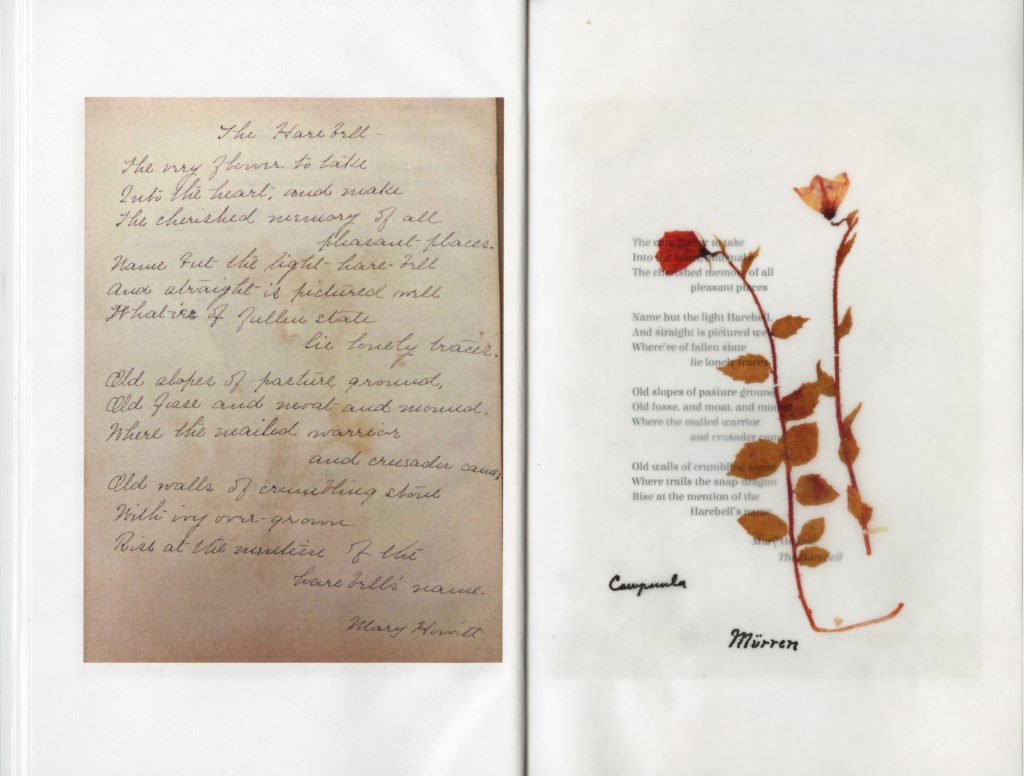 The Hare bell -
The very flower to take
Into the heart, and make
The cherished memory of all
pleasant places.
Name but the light hare-bell
And straight is pictured well
of fallen state
lie lonely traces.
Old slopes of pasture ground,
Old fosse and moat and mound,
Where the mailed warrior
and crusader came;
Old walls of crumbling stone
With ivy over-grown
Rise at the mention of the
harebell's name.
Mary Howitt
The to take
Into the heart, and make
The cherished memory of all
pleasant places
Name but the light Harebell,
And straight is pictured
Where're of fallen state
lie lonely traces
Old slopes of pasture ground
Old fosse, and moat, and
Where the mailed warrior
and crusader
Old walls of crumbling
Where trails the snap-dragon
Rise at the mention of the
Harebell's name
The Harebell
Campunla
Mürren